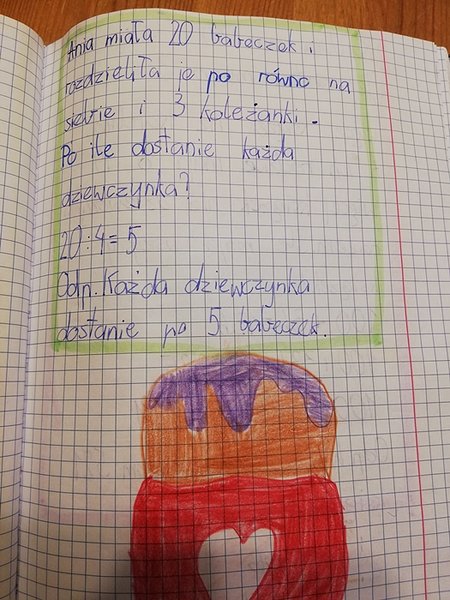 Ania miała 20 babeczek i
rozdzieliła je po równo na
siebie i 3 koleżanki.
Po ile dostanie każda
dziewczynka?
20:4=5
Odp. Każda dziewczynka
dostanie po 5 babeczek.